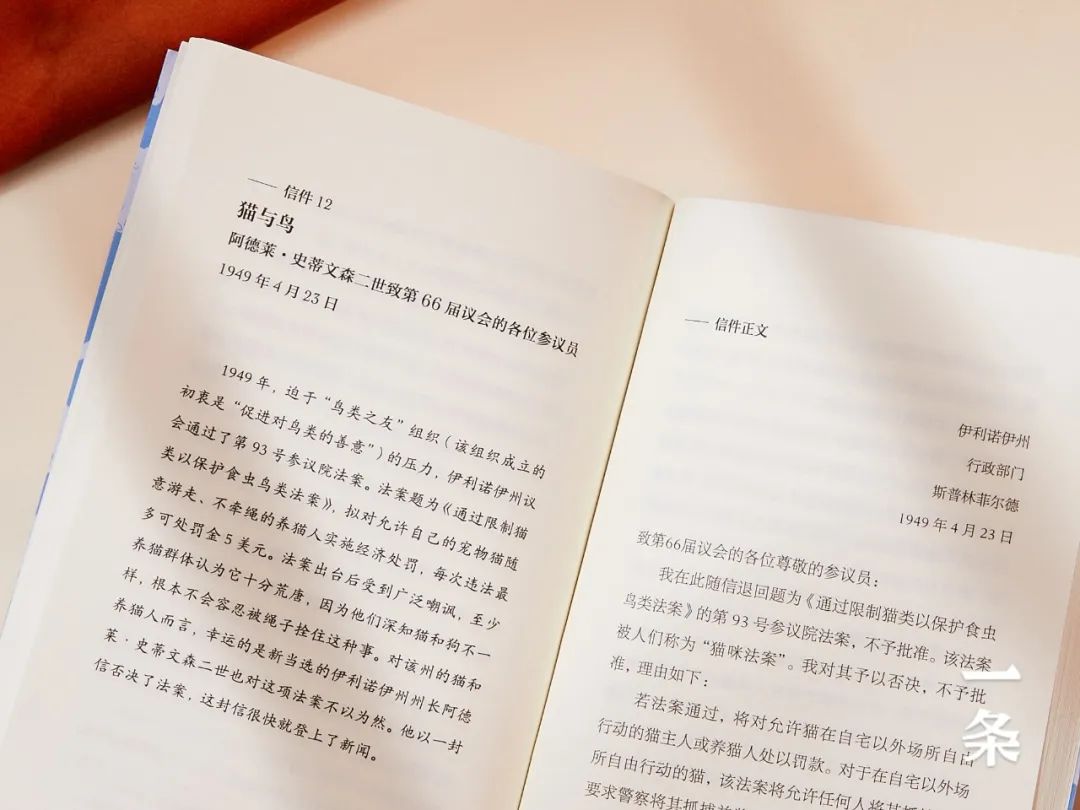 —— 信件 12
猫与鸟
阿德莱·史蒂文森二世致第 66 届议会的各位参议员
1949 年 4 月 23 日
1949 年，迫于“鸟类之友”组织（该组织成立的
初衷是“促进对鸟类的善意”）的压力，伊利诺伊州议
会通过了第 93 号参议院法案。法案题为《通过限制猫
类以保护食虫鸟类法案》，拟对允许自己的宠物猫随
意游走、不牵绳的养猫人实施经济处罚，每次违法最
多可处罚金 5 美元。法案出台后受到广泛嘲讽，至少
养猫群体认为它十分荒唐，因为他们深知猫和狗不一
样，根本不会容忍被绳子拴住这种事。对该州的猫和
养猫人而言，幸运的是新当选的伊利诺伊州州长阿德
莱·史蒂文森二世也对这项法案不以为然。他以一封
信否决了法案，这封信很快就登上了新闻。
—— 信件正文
伊利诺伊州
行政部门
斯普林菲尔德
1949 年 4 月 23 日
致第66届议会的各位尊敬的参议员：
我在此随信退回题为《通过限制猫类以保护食虫
鸟类法案》的第 93 号参议院法案，不予批准。该法案
被人们称为“猫咪法案”。我对其予以否决，不予批
准，理由如下：
若法案通过，将对允许猫在自宅以外场所自由
行动的猫主人或养猫人处以罚款。对于在自宅以外场
所自由行动的猫，该法案将允许任何人将其抓
要求警察将其抓捕
一条